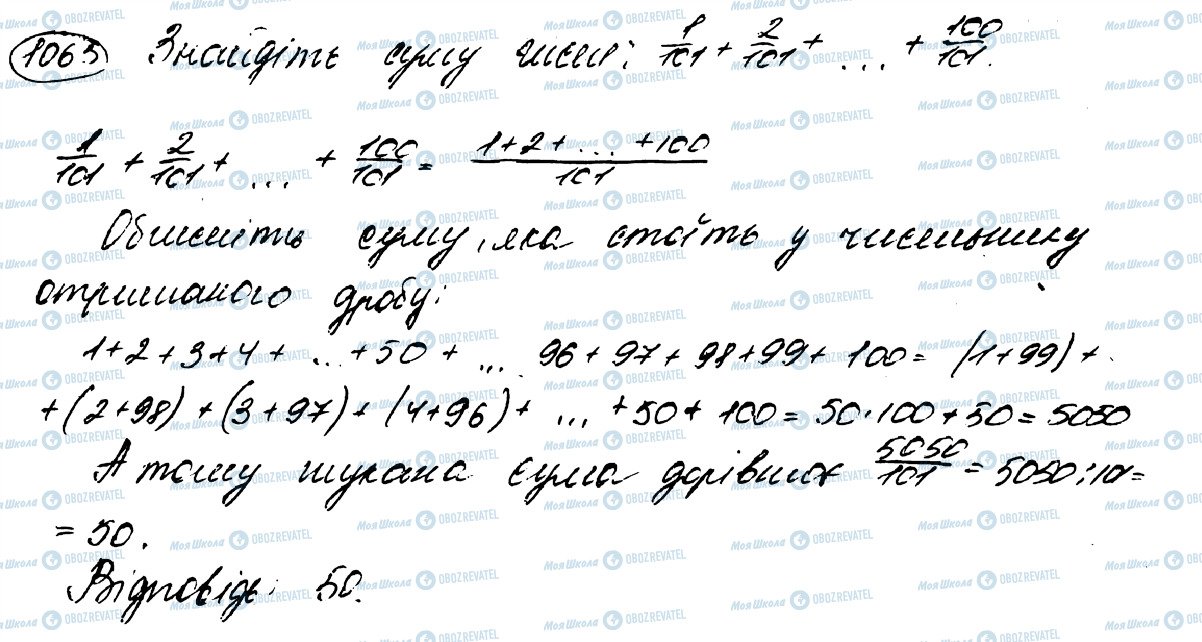 1063 Знайдіть суму чисел: 1/101 + 2/101 + ... + 100/101.
1/101 + 2/101 + ... + 100/101 = (1+2+ ... +100)/101
Обчисліть суму, яка стоїть у чисельнику
отриманого дробу:
1+2+3+4+ ... +50+ ... 96+97+98+99+100= (1+99)+
+(2+98)+(3+97)+(4+96)+ ... +50+100=50·100+50=5050
А тому шукана сума дорівнює 5050/101 = 5050:101=
=50.
Відповідь: 50.